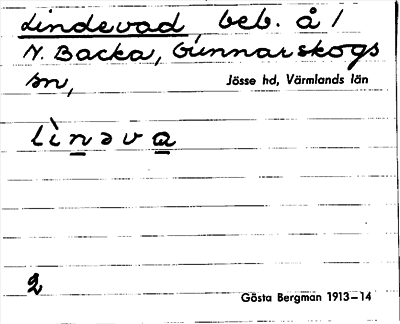 Lindevad, beb. å 1
N. Backa, Gunnarskogs
sn,
Jösse hd, Värmlands län
lìnəva
2
Gösta Bergman 1913–14